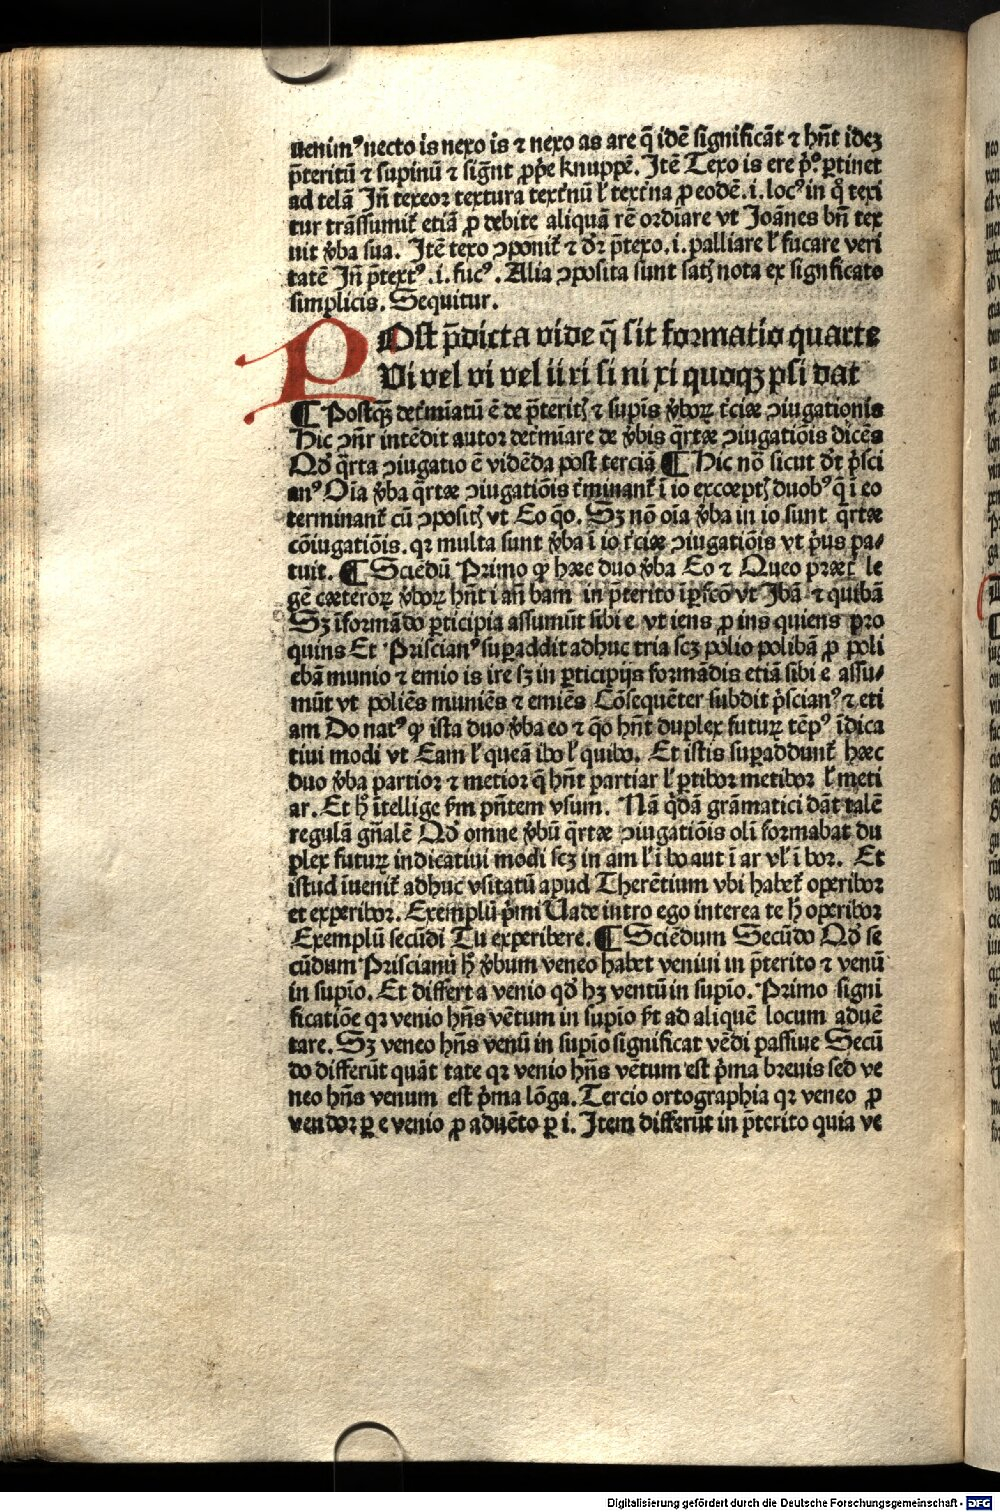 uenimꝰ necto is nexo is ⁊ nexo as are q̄ idē significāt ⁊ hn̄t idez
p̄teritū ⁊ supinū ⁊ sign̄t ꝓp̄e knuppē. Itē Texo is ere p̊.º ꝑtinet
ad telā Jn̄ texeor textura textr̄nū ł textr̄na ꝓ eodē .i. locꝰ in q̊ texi
tur trāssumit᷑ etiā ꝓ debite aliquā rē ordīare vt Joānes bn̄ tex
uit v̓ba sua. Itē texo ꝯponit᷑ ⁊ dr̄ p̄texo .i. palliare ł fucare veri
tatē Jn̄ p̄textꝰ .i. fucꝰ. Alia ꝯposita sunt satꝭ nota ex signficato
simplicis. Sequitur.
POst p̄dicta vide q̄ sit formatio quarte
Vi vel vi vel ii ri si ni xi quoqꝫ psi dat
¶ Postqꝫ det̓miatū ē de p̄teritꝭ ⁊ supīs v̓boꝝ t̓ciæ ꝯiugationis
Hic ꝯn̄r intēdit autor det̓miare de v̓bis q̄rtæ ꝯiugatiōis dicēs
Qd̓ q̄rta ꝯiugatio ē vidēda post terciā ¶ Hic nō sicut dt̄ p̓sci
anꝰ Oīa v̓ba q̄rtæ ꝯiugatiōis t̓minant᷑ ī io excœptꝭ duobꝰ q̄ ī eo
terminant᷑ cū ꝯpositꝭ vt Eo q̄o. Sꝫ nō oīa v̓ba in io sunt q̄rtæ
cōiugatiōis. qꝛ multa sunt v̓ba ī io t̓ciæ ꝯiugatiōis vt p̓us pa⸗
tuit. ¶ Sciēdū Primo ꝙ hæc duo v̓ba Eo ⁊ Queo præt̓ le
gē cæteroꝝ v̓boꝝ hn̄t i an̄ bam in p̄terito īp̓fcō vt Ibā ⁊ quibā
Sꝫ īformādo ꝑticipia assumūt sibi e vt iens ꝓ ins quiens pro
quins Et Priscianꝰ suꝑaddit adhuc tria scꝫ polio polibā ꝓ poli
ebā munio ⁊ emio is ire sꝫ in ꝑticipijs formādis etiā sibi e assu⸗
mūt vt poliēs muniēs ⁊ emiēs Cōsequēter subdit p̓scianꝰ ⁊ eti
am Do natꝰ ꝙ ista duo v̓ba eo ⁊ q̄o hn̄t duplex futuꝝ tēpꝰ īdica
tiui modi vt Eam ł queā ibo ł quibo. Et istis suꝑaddunt᷑ hæc
duo v̓ba partior ⁊ metior q̄ hn̄t partiar ł ꝑtibor metibor ł meti
ar. Et h̓ ītellige ẜm pn̄tem vsum. Nā q̄dā grāmatici dāt talē
regulā gn̄alē Qd̓ omne v̓bū q̄rtæ ꝯiugatiōis oli formabat du
plex futuꝝ indicatiui modi scꝫ in am ł ī bo aut ī ar vł ī bor. Et
istud īuenit᷑ adhuc vsitatū apud Therētium vbi habet᷑ operibor
et experibor. Exemplū p̓mi Uade intro ego interea te h̓ operibor
Exemplū secūdi Tu experibere. ¶ Sciēdum Secūdo Qd̓ se
cūdum Priscianū h̓ v̓bum veneo habet veniui in p̄terito ⁊ venū
in supīo. Et differt a venio qd̓ hꝫ ventū in supīo. Primo signi
ficatiōe qꝛ venio hn̄s vētum in supīo fit ad aliquē locum aduē
tare. Sꝫ veneo hn̄s venū in supīo significat vēdi passiue Secū
do differūt quāt tate qꝛ venio hn̄s vētum est p̓ma breuis sed ve
neo hn̄s venum est p̓ma lōga. Tercio ortographia qꝛ veneo ꝓ
vendor ꝑ e venio ꝓ aduēto ꝑ i. Item differūt in p̄terito quia ve
Digitalisierung gefördert durch die Deutsche Forschungsgemeinschaft - DFG